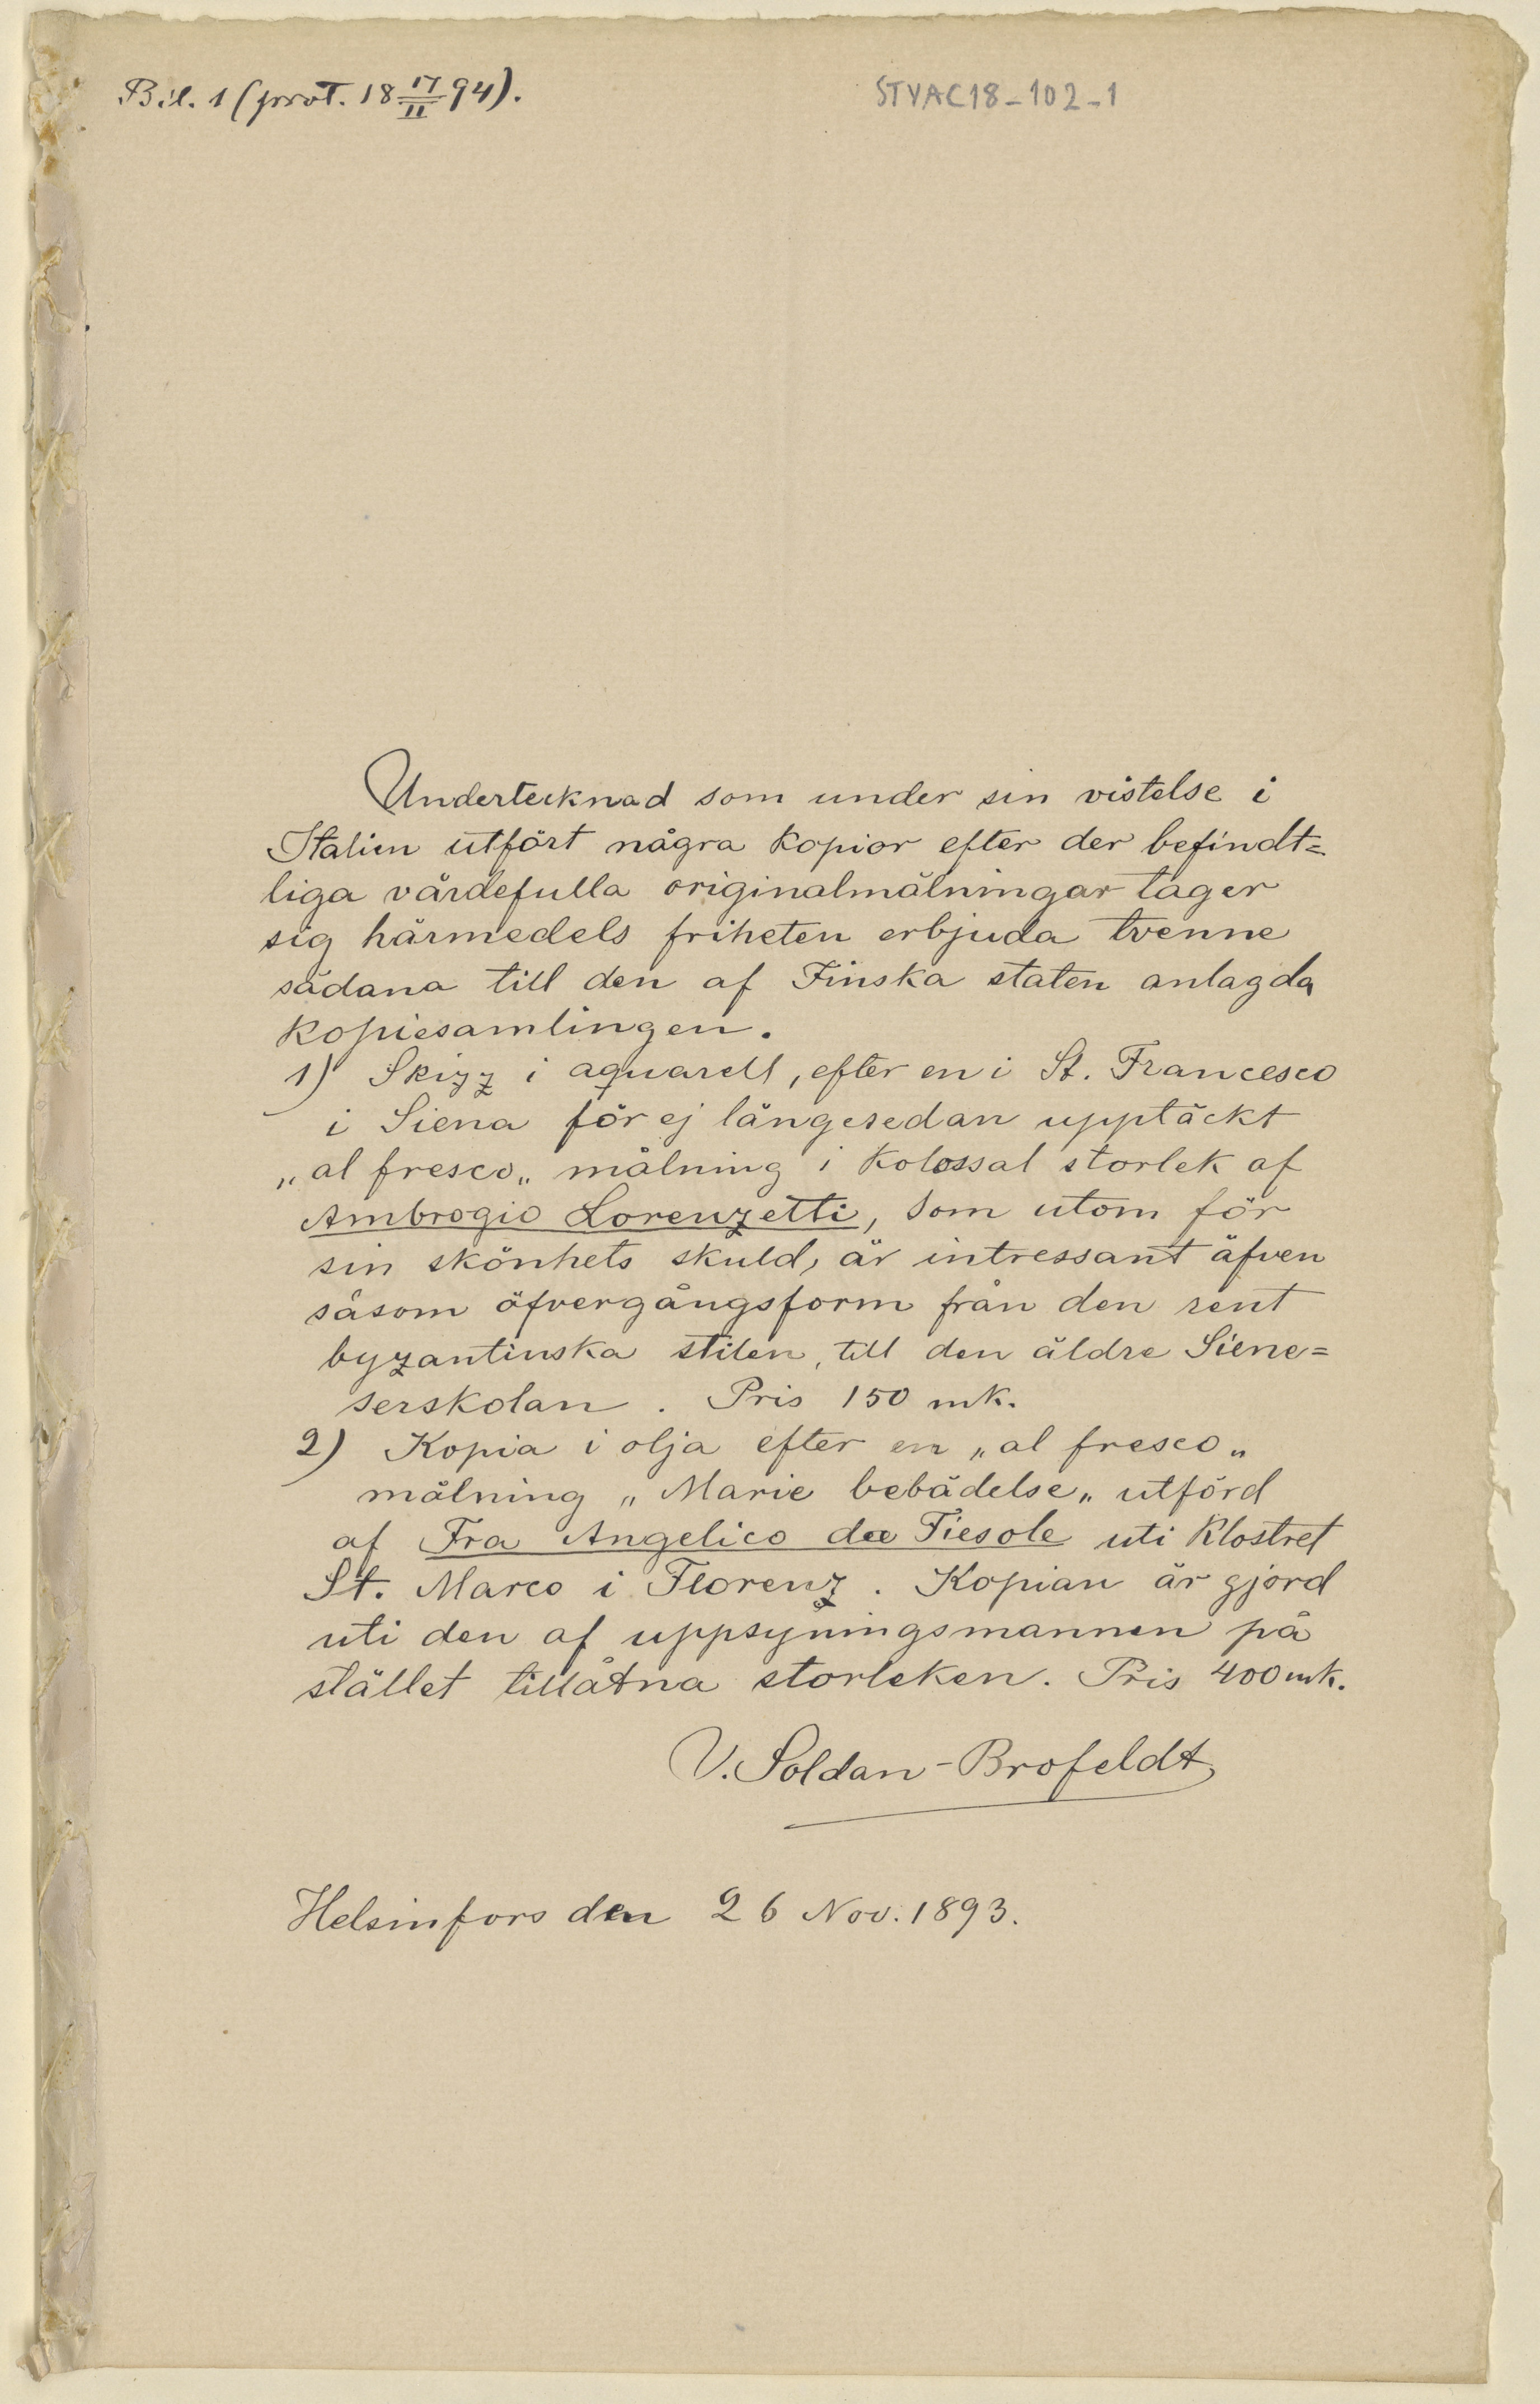 Bil. 1 (prot. 18 17/II 94).
STYAC18-102-1
Undertecknad som under sin vistelse i
Italien utfört några kopior efter der befindt=
liga värdefulla originalmålningar tager
sig härmedels friheten erbjuda tvenne
sådana till den af Finska staten anlagda
kopiesamlingen.
1) Skizz i aquarell, efter en i St. Francesco
i Siena för ej längesedan upptäckt
„al fresco„ målning i kolossal storlek af
Ambrogio Lorenzetti, som utom för
sin skönhets skuld, är intressant äfven
såsom öfvergångsform från den rent
byzantinska stilen, till den äldre Siene=
serskolan. Pris 150 mk.
2) Kopia i olja efter en „al fresco„
målning „Marie bebådelse„ utförd
af Fra Angelico da Fiesole uti klostret
St. Marco i Florenz. Kopian är gjord
uti den af uppsyningsmannen på
stället tillåtna storleken. Pris 400 mk.
V. Soldan-Brofeldt
Helsinfors den 26 Nov. 1893.